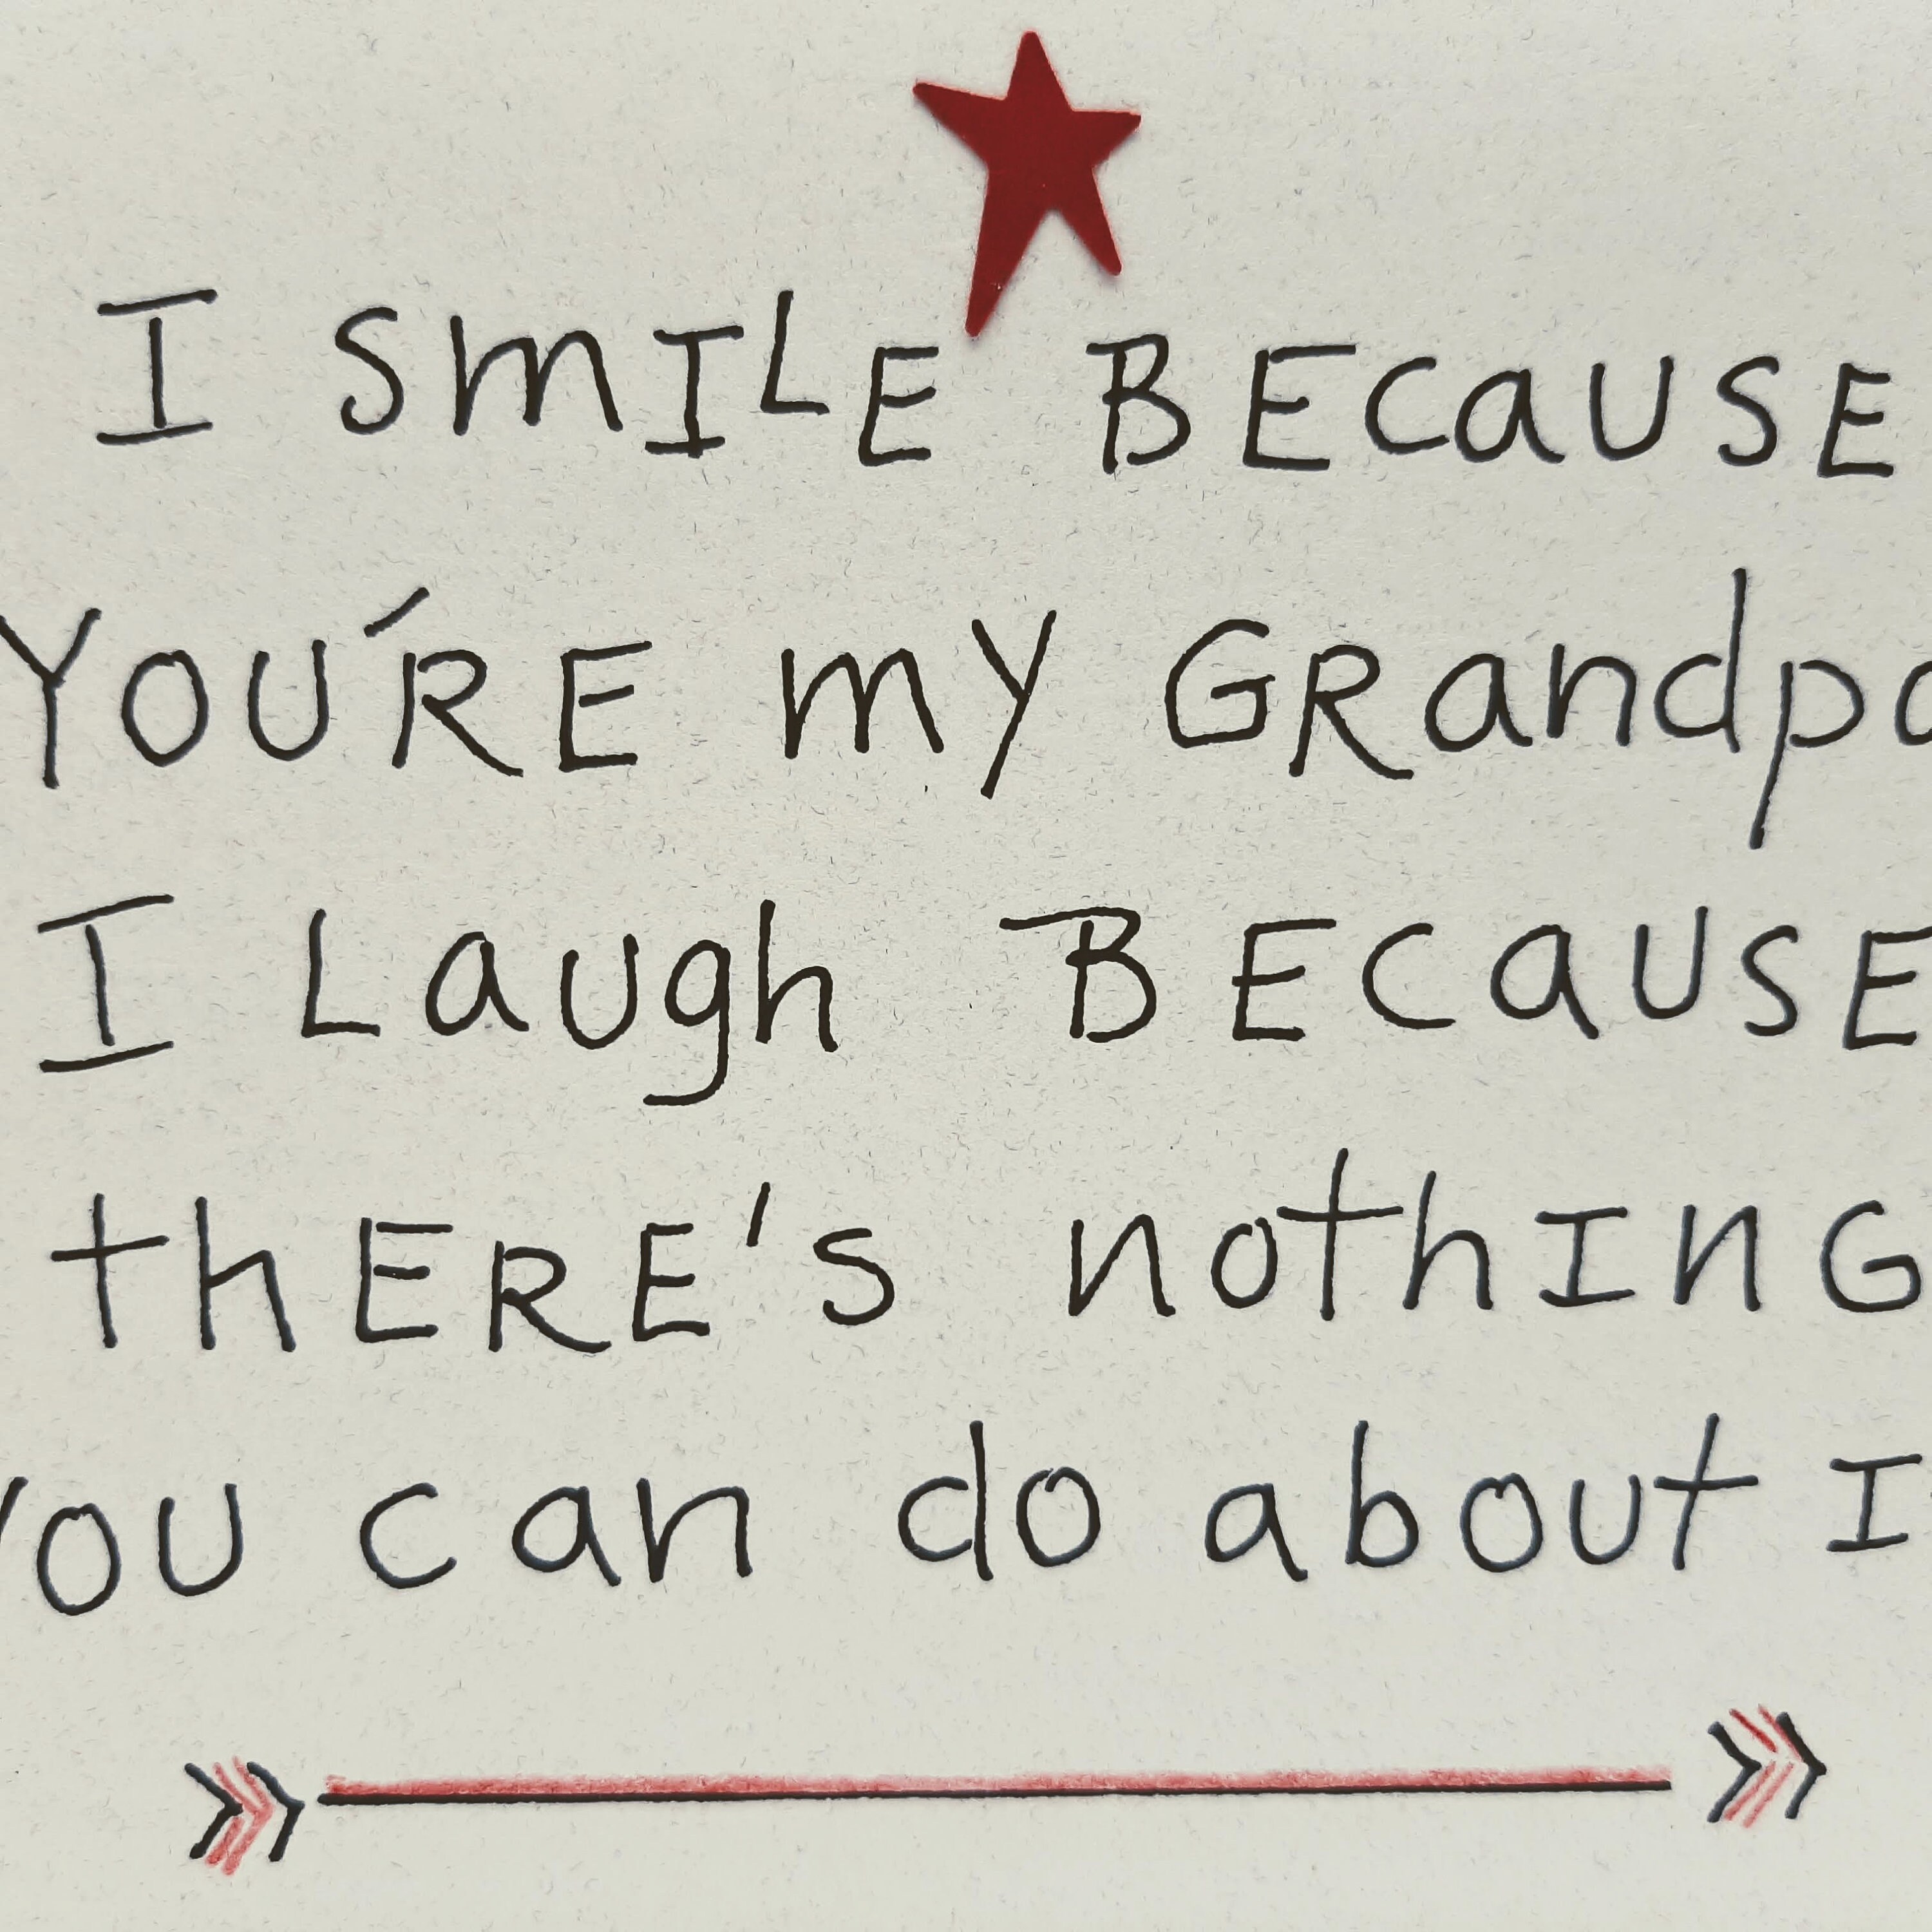 I SMILE BECAUSE
YOU'RE MY GRANDPA
I LAUGH BECAUSE
THERE'S NOTHING
YOU CAN DO ABOUT I